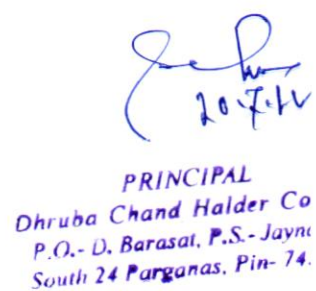 PRINCIPAL
Dhruba Chand Halder Co
P.O.- D. Barasat, P.S.- Jayn
South 24 Parganas, Pin- 74.